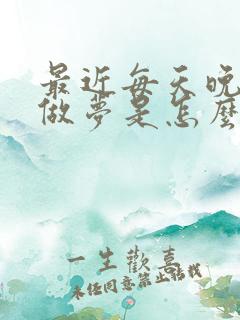 最近每天晚
做夢是怎麼
一生歡喜
未经同意禁止搭讪